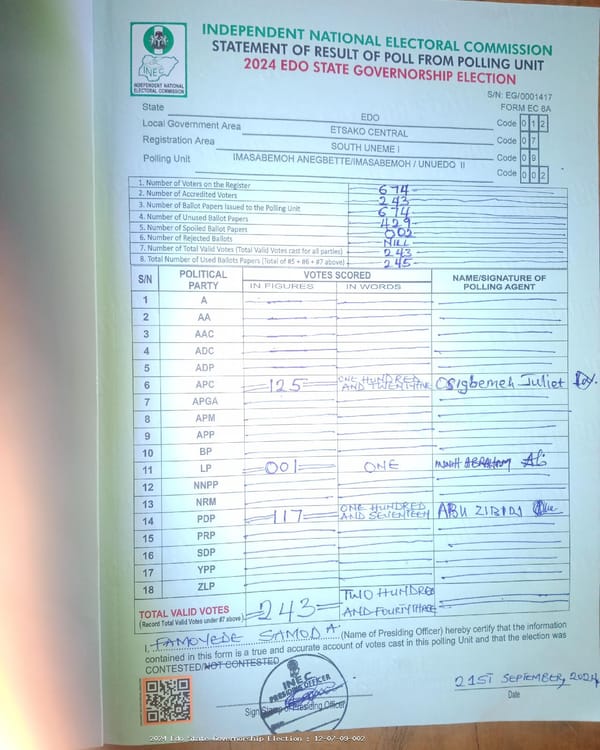 INDEPENDENT NATIONAL ELECTORAL COMMISSION
STATEMENT OF RESULT OF POLL FROM POLLING UNIT
2024 EDO STATE GOVERNORSHIP ELECTION
INEC
INDEPENDENT NATIONAL
ELECTORAL COMMISSION
S/N: EG/0001417
FORM EC 8A
State EDO Code 012
Local Government Area ETSAKO CENTRAL Code 07
Registration Area SOUTH UNEME I Code 09
Polling Unit IMASABEMOH ANEGBETTE/IMASABEMOH / UNUEDO II Code 002
1. Number of Voters on the Register 674
2. Number of Accredited Voters 243
3. Number of Ballot Papers Issued to the Polling Unit 674
4. Number of Unused Ballot Papers 429
5. Number of Spoiled Ballot Papers 002
6. Number of Rejected Ballots NILL
7. Number of Total Valid Votes (Total Valid Votes cast for all parties) 243
8. Total Number of Used Ballots Papers (Total of #5 + #6 + #7 above) 245
S/N POLITICAL PARTY VOTES SCORED NAME/SIGNATURE OF POLLING AGENT
IN FIGURES IN WORDS
1 A
2 AA
3 AAC
4 ADC
5 ADP
6 APC 125 ONE HUNDRED AND TWENTY FIVE Osigbemeh Juliet
7 APGA
8 APM
9 APP
10 BP
11 LP 001 ONE ABRAHAM
12 NNPP
13 NRM
14 PDP 117 ONE HUNDRED AND SEVENTEEN ABU
15 PRP
16 SDP
17 YPP
18 ZLP
TOTAL VALID VOTES 243 TWO HUNDRED
(Record Total Valid Votes under #7 above) AND FOURTH THREE
I, FAMOYEDE SAMOD A. (Name of Presiding Officer) hereby certify that the information
contained in this form is a true and accurate account of votes cast in this polling Unit and that the election was
CONTESTED/NOT CONTESTED
INEC
PRESIDING OFFICER
Sign Stamp of Presiding Officer
21ST SEPTEMBER, 2024
Date
2024 Edo State Governorship Election : 12-07-09-002